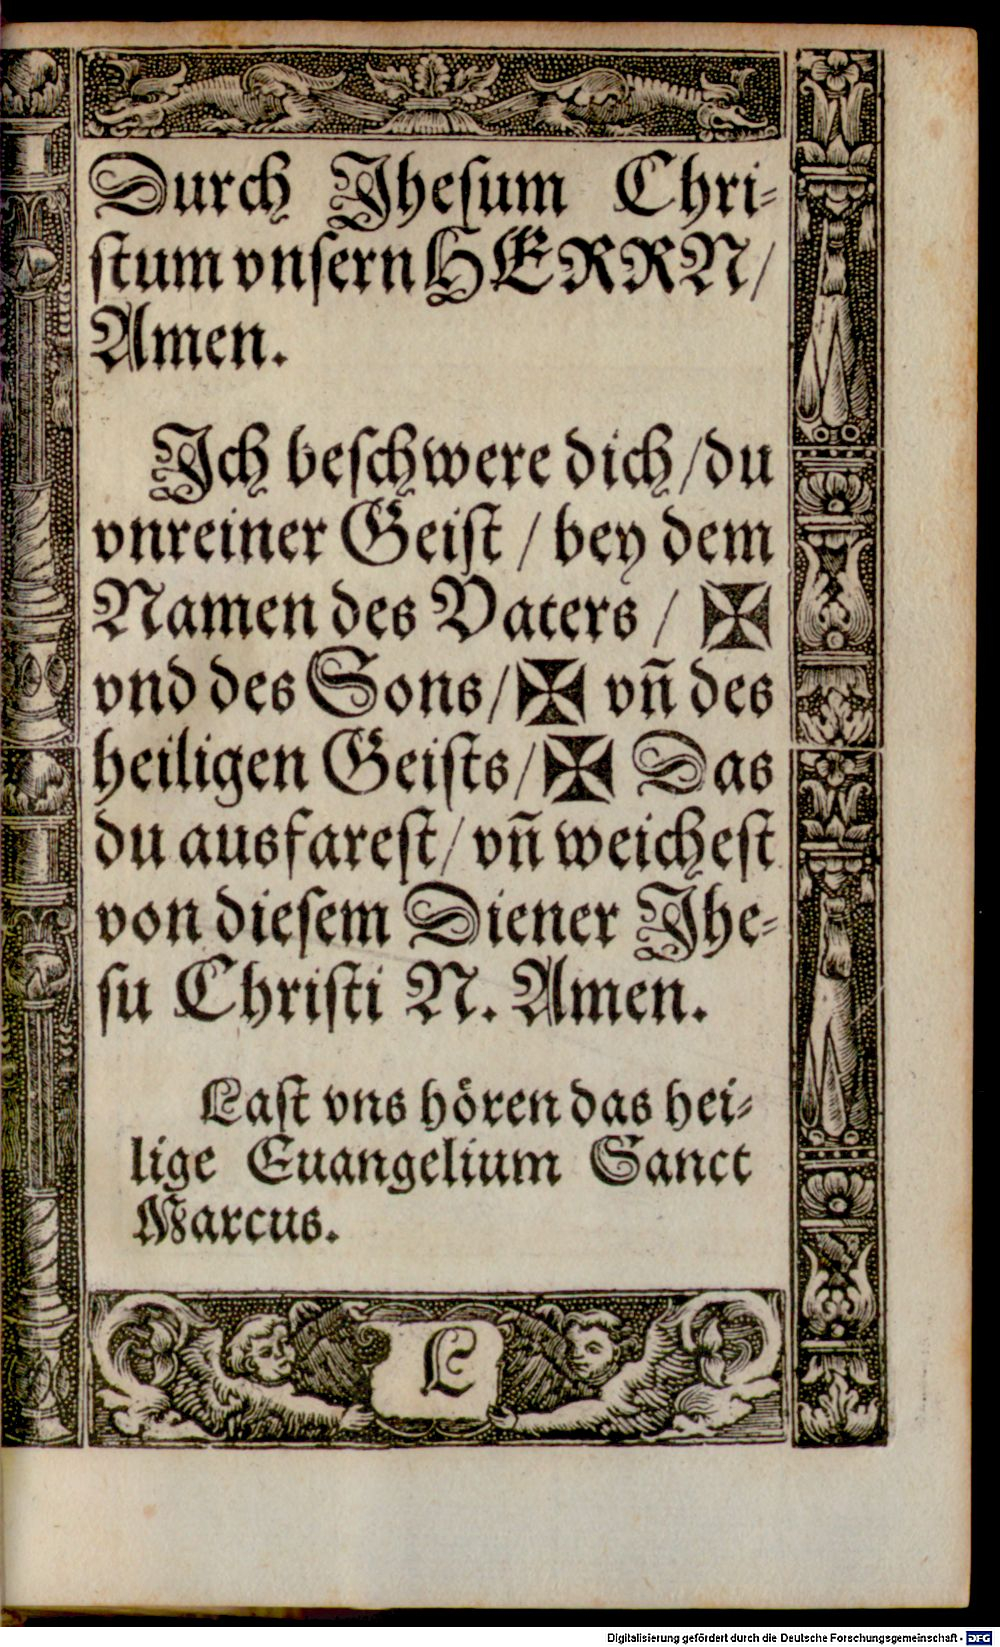 Durch Jheſum Chri-
ſtum vnſern HERRN/
Amen.
Jch beſchwere dich/du
vnreiner Geiſt / bey dem
Namen des Vaters / ✠
vnd des Sons/✠ vñ des
heiligen Geiſts/✠ Das
du ausfareſt/vñ weicheſt
von dieſem Diener Jhe-
ſu Chriſti N. Amen.
Laſt vns hören das hei-
lige Euangelium Sanct
Marcus.
L
Digitalisierung gefördert durch die Deutsche Forschungsgemeinschaft - DFG